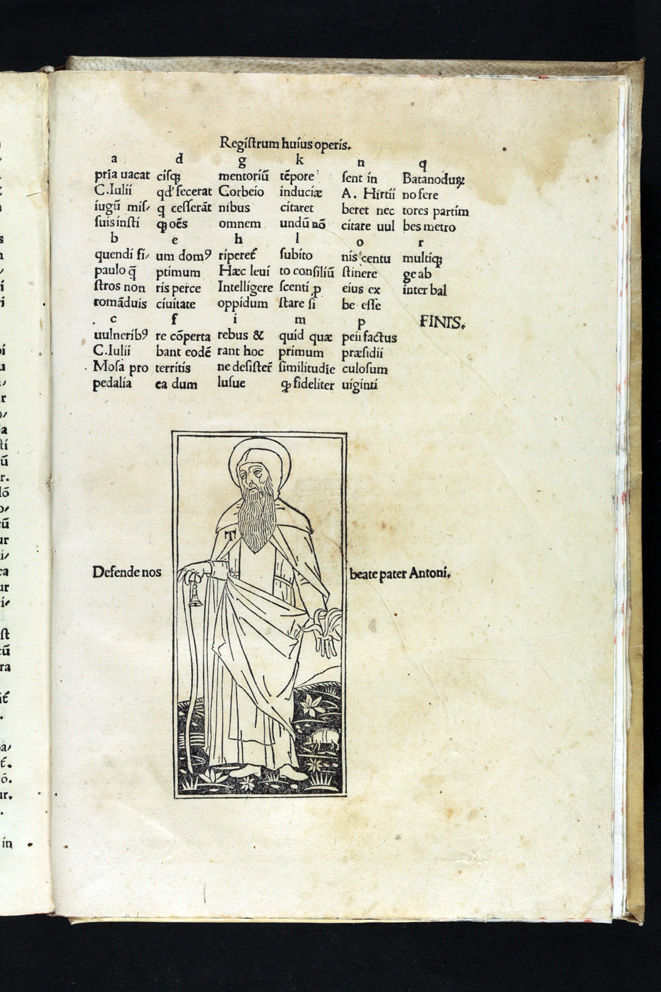 Registrum huius operis.
a d g k n q
pria uacat cisqꝫ mentoriũ tẽpore sent in Batanoduꝝ
C. Iulii qd' fecerat Corbeio induciæ A. Hirtii no fere
iugũ mis/ q cesserãt nibus citaret beret nec tores partim
suis insti oẽs omnem undũ nõ citare uul bes metro
b e h l o r
quendi fi/ um domꝰ subito nis centu multiqꝫ
paulo q̃ ptimum Hæc leui to consiliũ stinere ge ab
stros non ris perce Intelligere scenti ꝓ eius ex inter bal
romãduis ciuitate oppidum stare si be esse
c f i m p FINIS.
uulneribꝰ re cõperta rebus & quid quæ peii factus
C. Iulii bant eodẽ rant hoc primum præsidii
Mosa pro territis similitudĩe culosum
pedalia ea dum lusue fideliter uiginti
Defende nos beate pater Antoni.